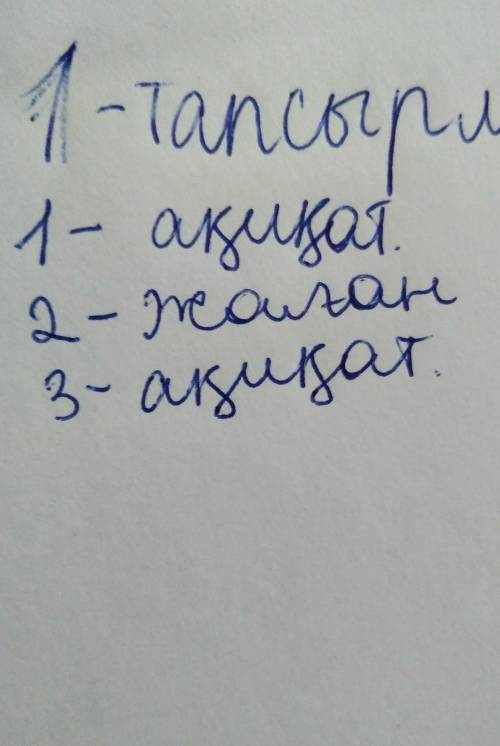 1-тапсырм
1- ақиқат.
2- жалған
3- ақиқат.